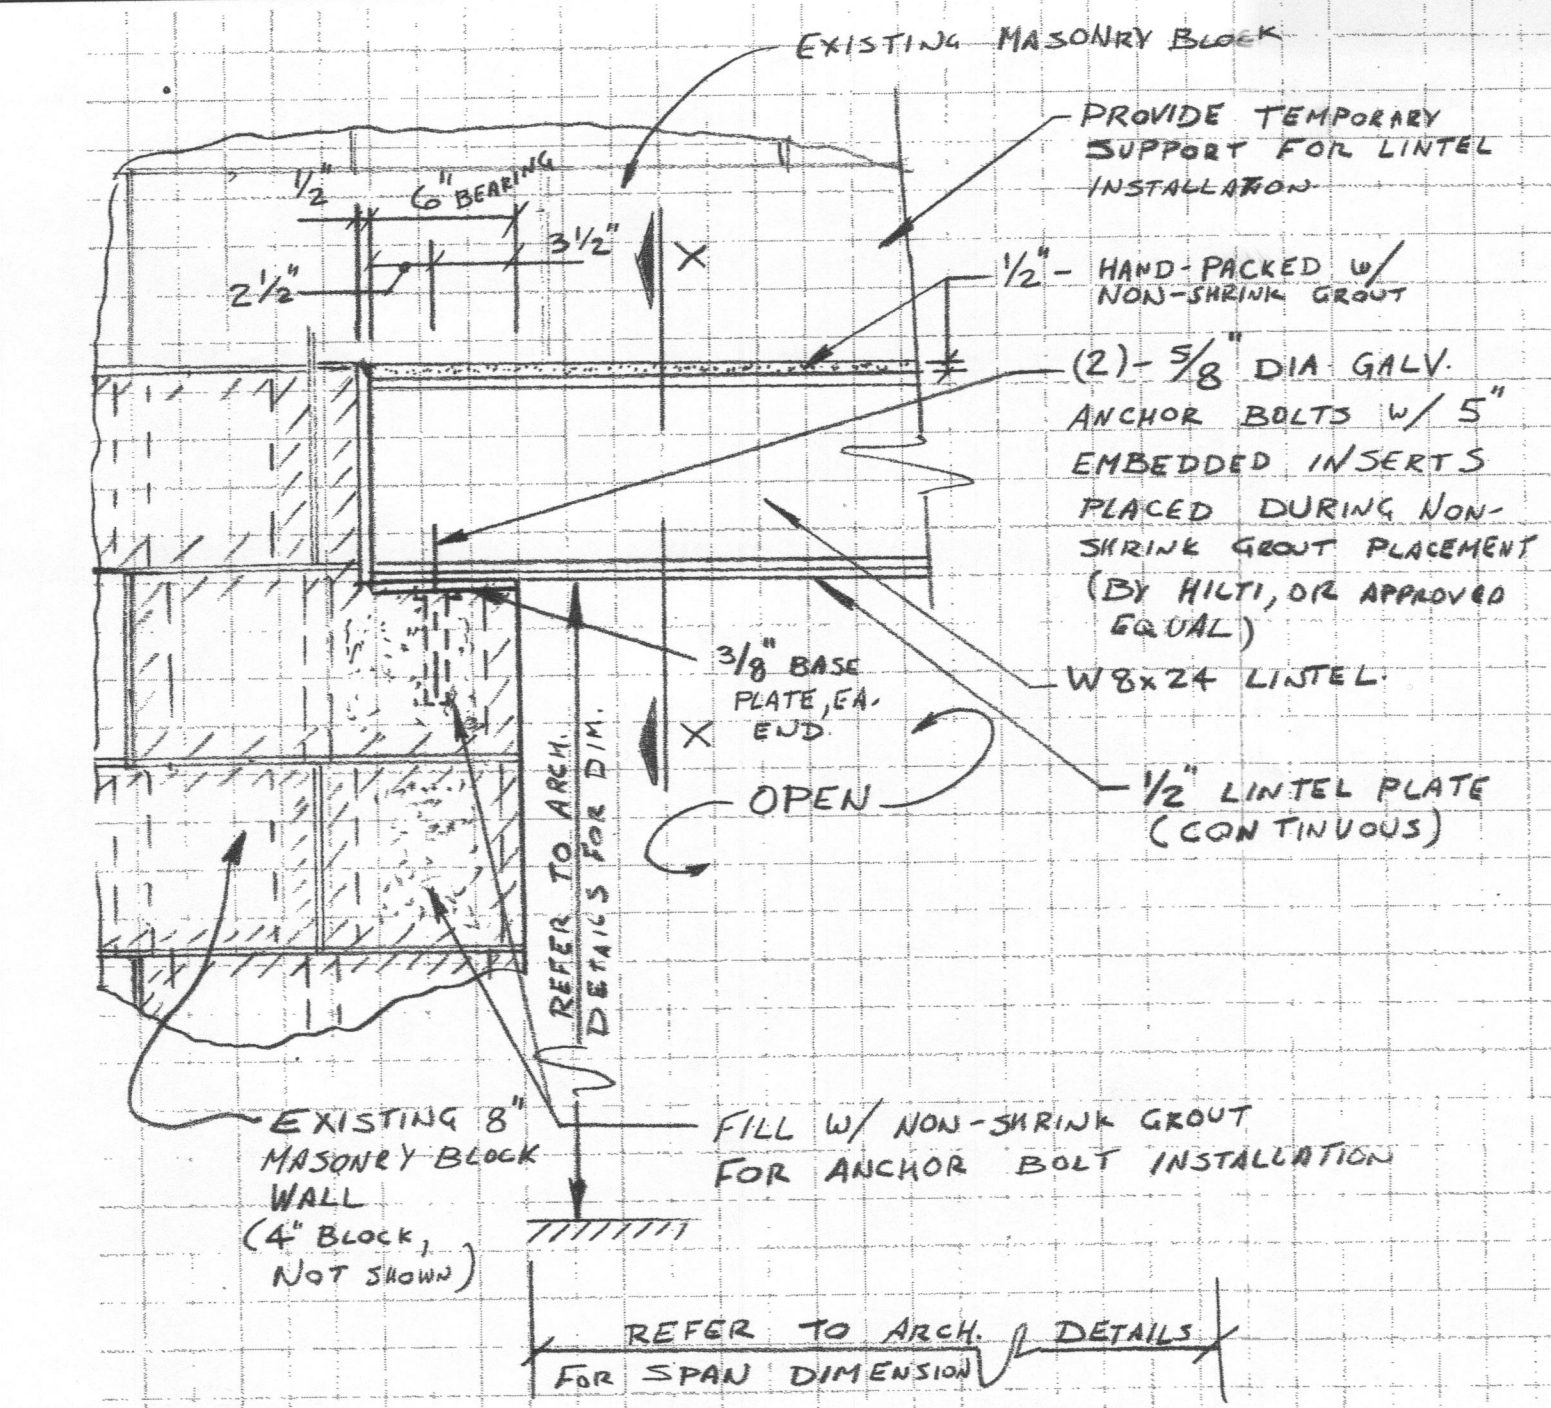 EXISTING MASONRY BLOCK
PROVIDE TEMPORARY
SUPPORT FOR LINTEL
INSTALLATION.
1/2"
6" BEARING
3 1/2"
2 1/2"
X
1/2" - HAND-PACKED w/
NON-SHRINK GROUT
(2) - 5/8" DIA GALV.
ANCHOR BOLTS w/ 5"
EMBEDDED INSERTS
PLACED DURING NON-
SHRINK GROUT PLACEMENT
(BY HILTI, OR APPROVED
EQUAL)
3/8" BASE
PLATE, EA.
END.
W8x24 LINTEL.
X
OPEN
1/2" LINTEL PLATE
(CONTINUOUS)
REFER TO ARCH.
DETAILS FOR DIM.
EXISTING 8"
MASONRY BLOCK
WALL
(4" BLOCK,
NOT SHOWN)
FILL w/ NON-SHRINK GROUT
FOR ANCHOR BOLT INSTALLATION
REFER TO ARCH. DETAILS
FOR SPAN DIMENSION